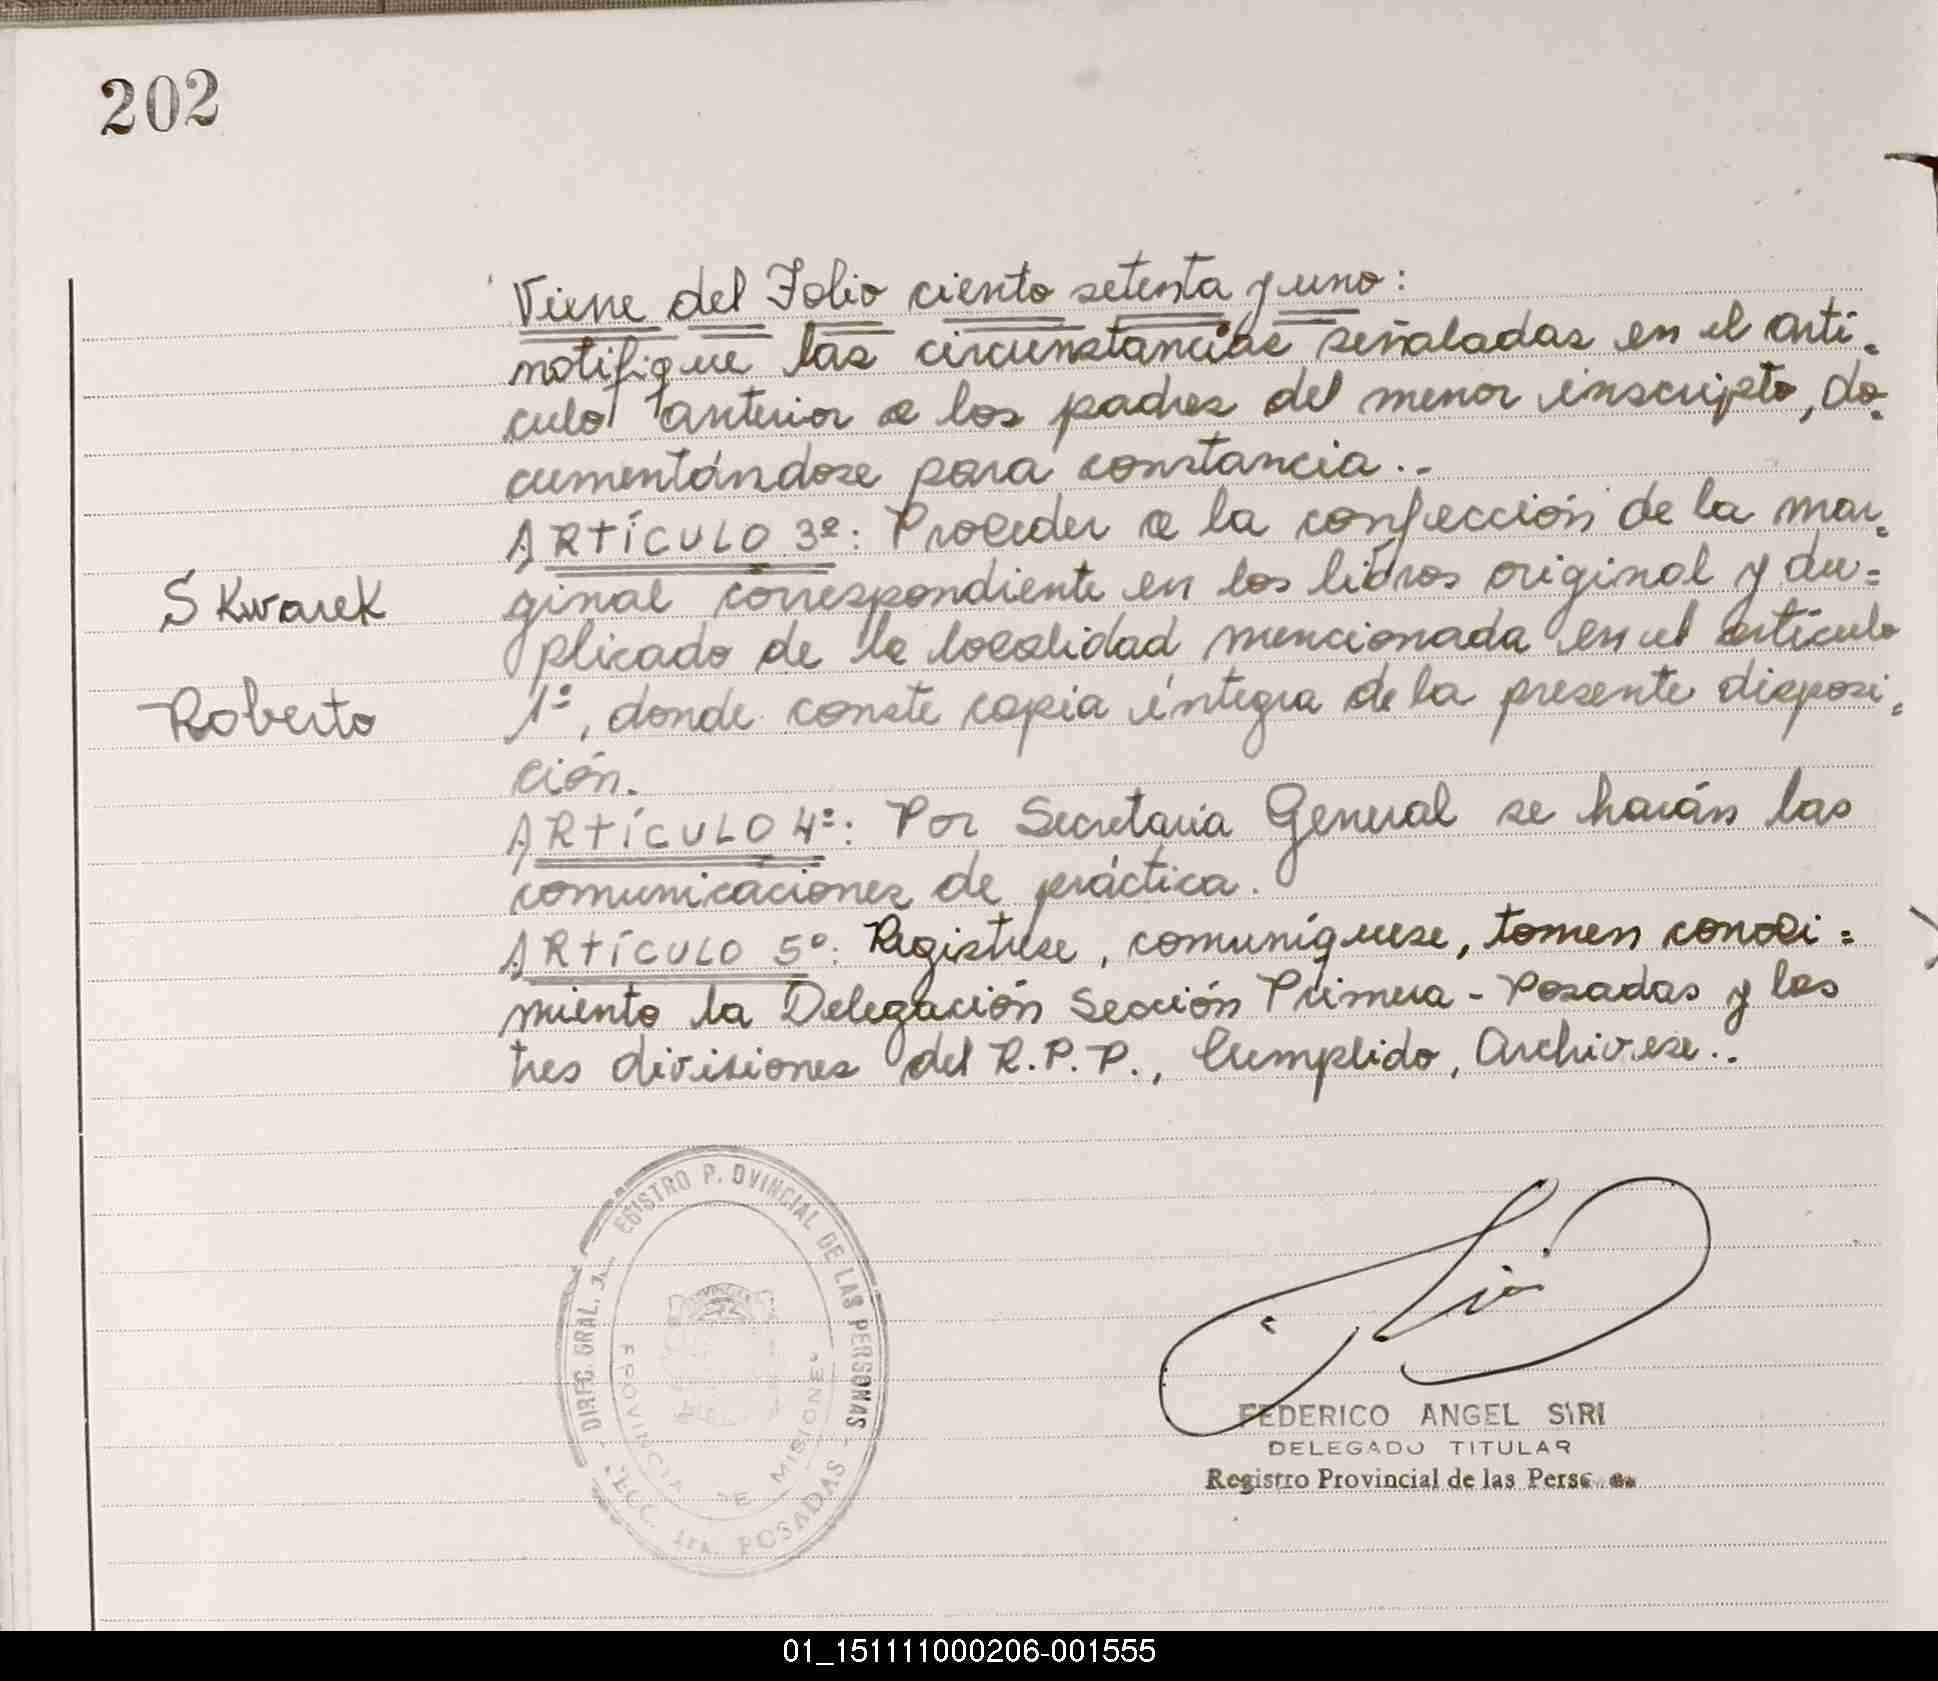 202
Viene del Folio ciento setenta y uno:
notifique las circunstancias señaladas en el artí-
culo anterior a los padres del menor inscripto, do-
cumentándose para constancia.-
ARTÍCULO 3º: Proceder a la confección de la mar-
Skwarek
ginal correspondiente en los libros original y du=
plicado de la localidad mencionada en el artículo
Roberto
1º, donde conste copia íntegra de la presente disposi-
ción.
ARTÍCULO 4º: Por Secretaría General se harán las
comunicaciones de práctica.
ARTÍCULO 5º: Regístrese, comuníquese, tomen conoci=
miento la Delegación Sección Primera - Posadas y las
tres divisiones del R.P.P., Cumplido, Archívese.-
DIREC. GRAL. EGISTRO P. OVINCIAL DE LAS PERSONAS
PROVINCIA DE MISIONES
SECC. 1ra. POSADAS
Siri
FEDERICO ANGEL SIRI
DELEGADO TITULAR
Registro Provincial de las
01_151111000206-001555